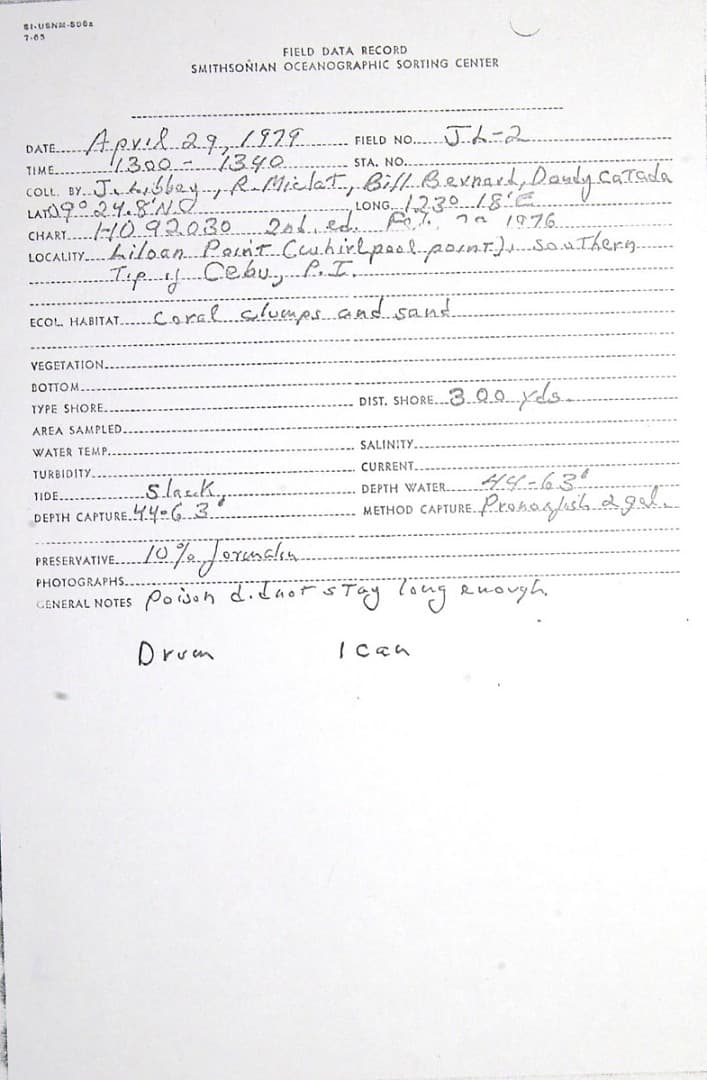 SI-USNM-506a
7-65
FIELD DATA RECORD
SMITHSONIAN OCEANOGRAPHIC SORTING CENTER
DATE April 29, 1979 FIELD NO. JL-2
TIME 1300 - 1340 STA. NO.
COLL. BY J. Libbey, R. Miclat, Bill Bernard, Dandy Catada
LAT. 09° 24.8' N LONG. 123° 18' E
CHART HO 92030 2nd. ed. 1976
LOCALITY Liloan Point (whirlpool point), southern
Tip of Cebu, P.I.
ECOL. HABITAT coral clumps and sand
VEGETATION
BOTTOM
TYPE SHORE DIST. SHORE 300 yds.
AREA SAMPLED
WATER TEMP. SALINITY
TURBIDITY CURRENT
TIDE Slack, DEPTH WATER 44-63'
DEPTH CAPTURE 44-63' METHOD CAPTURE Pronoxfish 2 gal.
PRESERVATIVE 10% formalin
PHOTOGRAPHS
GENERAL NOTES Poison did not stay long enough.
Drum 1 can